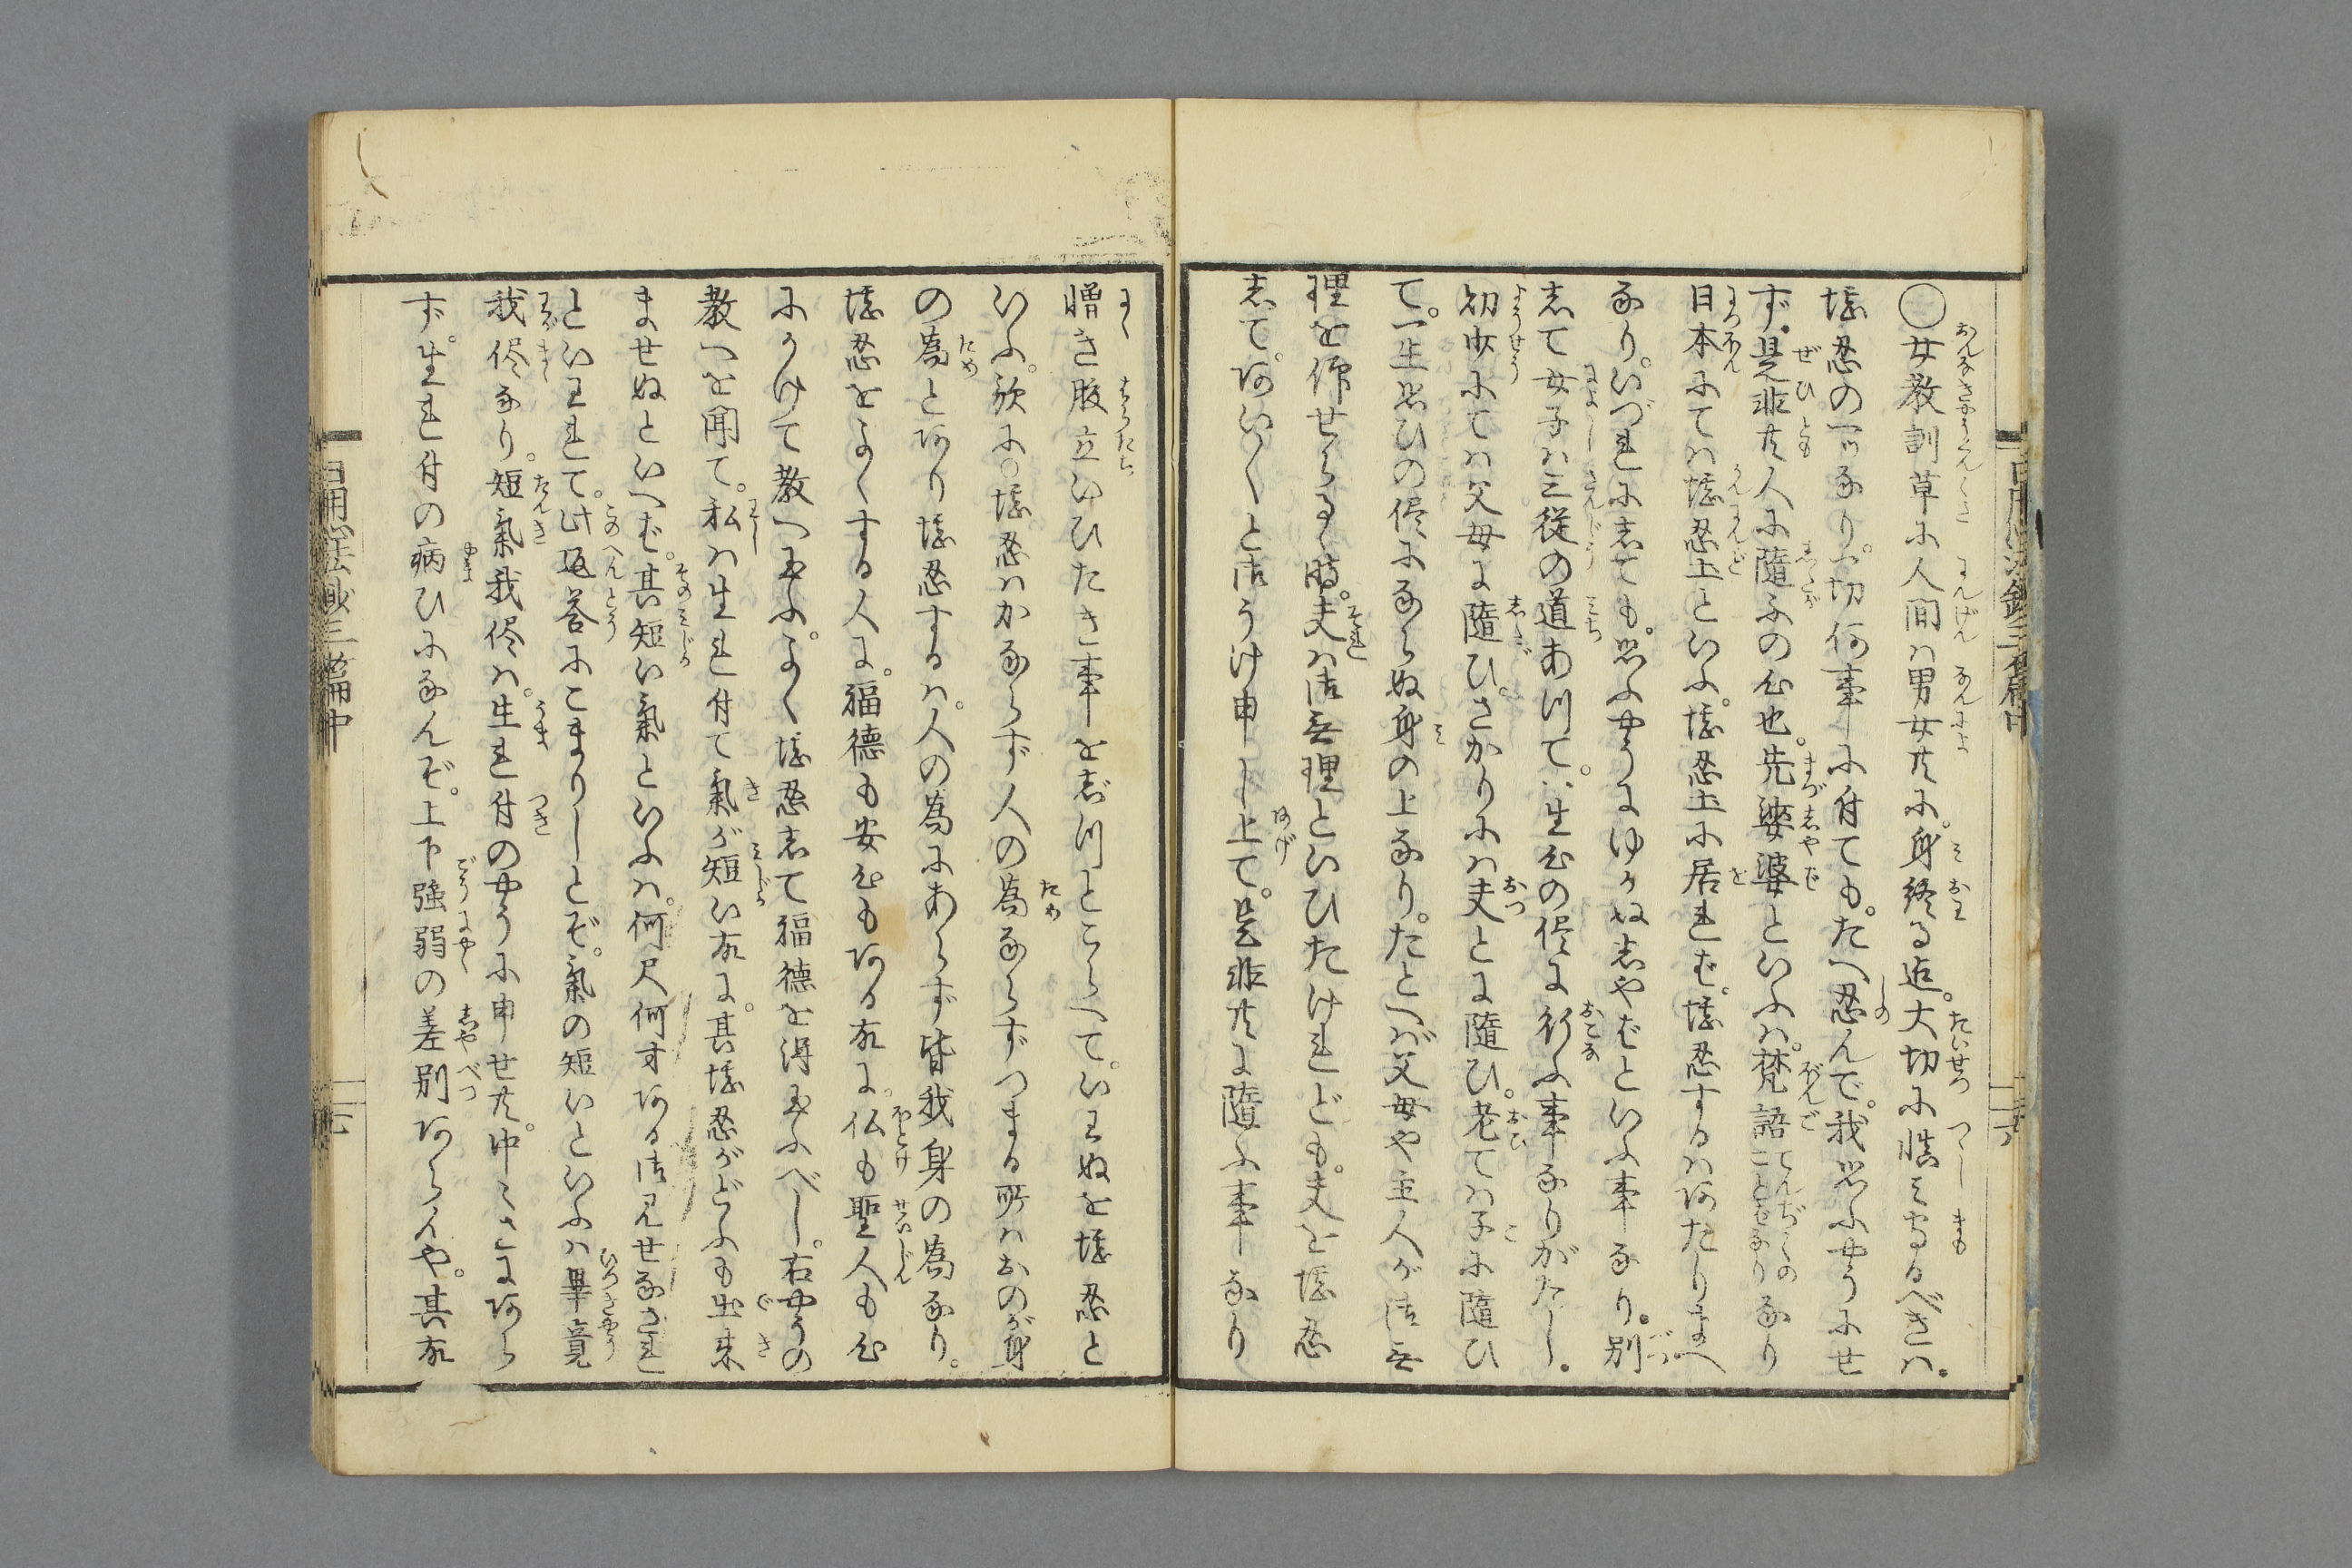 ○女教訓草に人間ハ男女共に。身終る迄。大切に慎ミ守るべきハ。
堪忍の一ツなり。一切何事に付ても。たへ忍んで。我思ふやうにせ
ず。是非共人に随ふの心也。先娑婆といふハ。梵語てんぢくのことばなりなり
日本にてハ堪忍土といふ。堪忍土に居れば。堪忍するハあたりまへ
なり。いづれにしても。思ふやうにゆかぬしやばといふ事なり。別
して女子ハ三従の道あつて。一生心の侭に行ふ事なりがたし。
幼少にてハ父母に随ひ。さかりにハ夫とに随ひ。老てハ子に随ひ
て。一生思ひの侭にならぬ身の上なり。たとへバ父母や主人が御無
理を仰せらるゝ時。夫ハ御無理といひたけれども。夫を堪忍
して。あい〳〵と御うけ申し上て。是非共に随ふ事なり
憎き腹立いひたき事をじつとこらへて。いわぬを堪忍と
いふ。歌に○堪忍ハかならず人の為ならずつまる所ハおのが身
の為とあり堪忍するハ。人の為にあらず皆我身の為なり。
堪忍をよくする人に。福徳も安心もある故に。仏も聖人も心
にかけて教へ玉ふ。よく堪忍して福徳を得玉ふべし。右やうの
教へを聞て。私ハ生れ付て気が短い故に。其堪忍がどふも出来
ませぬといへば。其短い気といふハ。何尺何寸ある御見せなされ
といわれて。此返答にこまりしとぞ。気の短いといふハ畢竟
我侭なり。短気我侭ハ。生れ付のやうに申せ共。中〳〵さにあら
ず。生れ付の病ひになんぞ。上下強弱の差別あらんや。其故
日用心法鈔三篇中